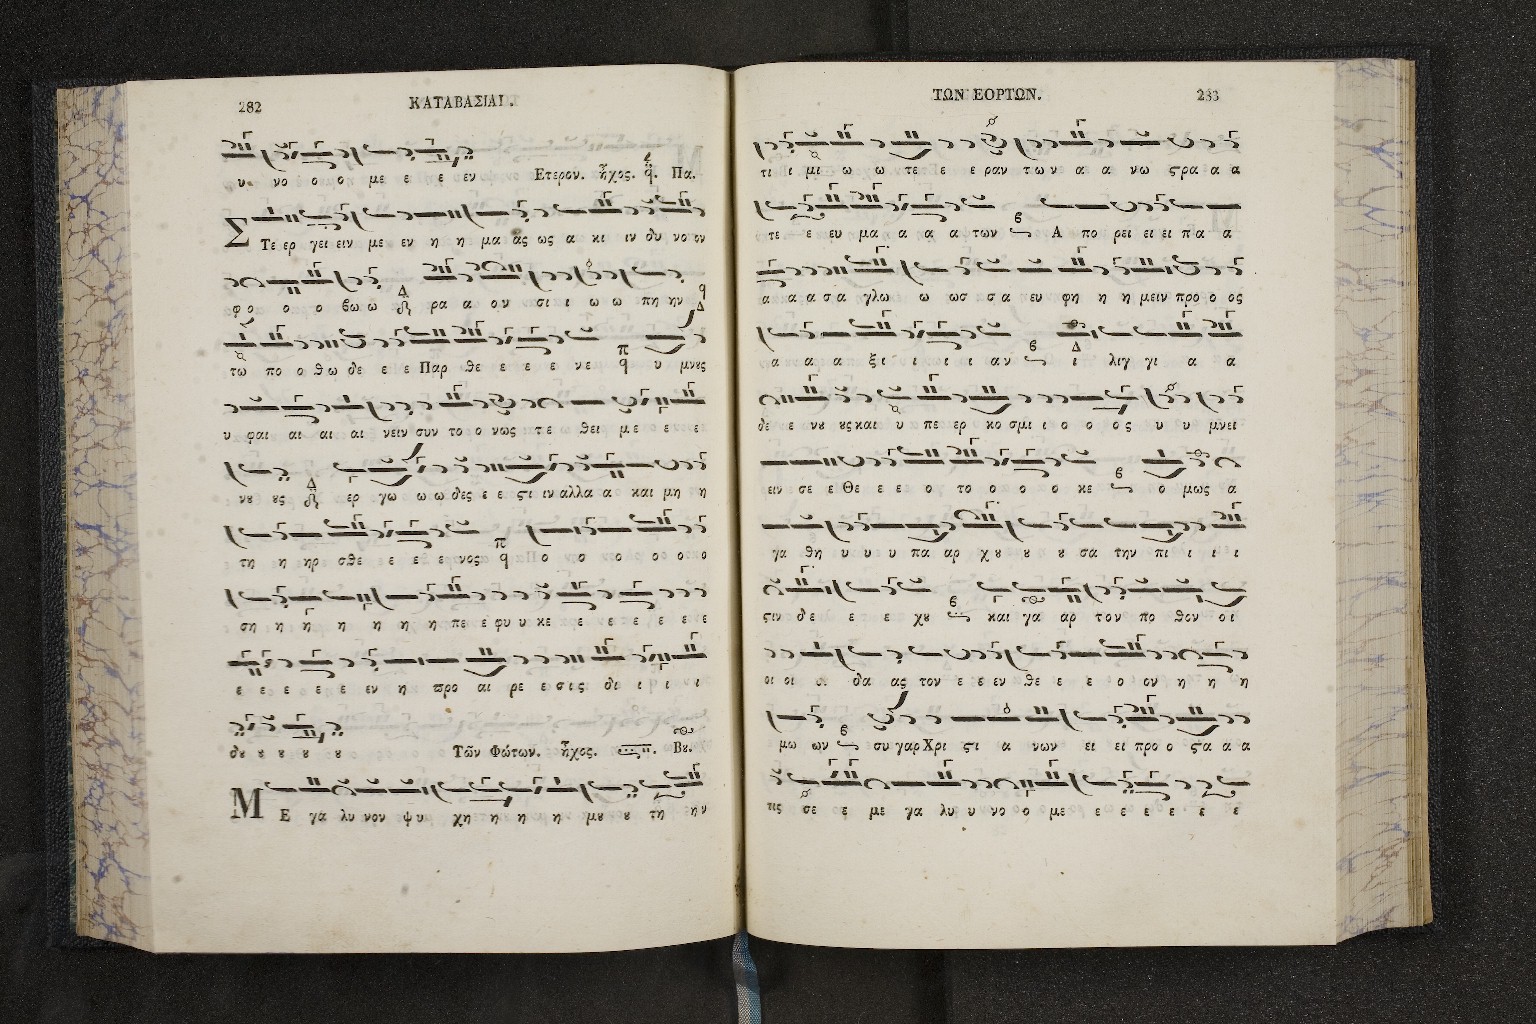 282 ΚΑΤΑΒΑΣΙΑΙ.
υ νο ο ο με ε ε εν Ετερον. ἦχος. Πα.
Σ Τε ερ γει ειν με εν η η μα ας ως α κι ιν δυ νο ον
φο ο ο βω ω ρα α ον σι ι ω ω πη ην
τω πο ο θω δε ε ε Παρ θε ε ε ε νε υ μνȣς
υ φαι αι αι αι νειν συν το ο νως τε θει με ε ε
νȣ ȣς ερ γω ω ω δες ε ε ςι ιν αλλα α και μη η
τη η ηρ σθε ε ε ε νος ο ο ο ο ο ο ο
ση η η η η η η πε ε φυ υ κε ε ε ε ε ε ε
ε ε ε ε ε εν η προ αι ρε ε σις δι ι ι ι
δȣ ȣ ȣ ȣ ȣ Τῶν Φώτων. ἦχος. Βȣ.
Μ Ε γα λυ νον ψυ χη η η η μȣ ȣ τη ην
ΤΩΝ ΕΟΡΤΩΝ. 283
τι ι μι ω ω τε ε ε ραν των α α νω ςρα α α
τε ε ευ μα α α α των Α πο ρει ει ει πα α
α α α σα γλω ω ωσ σα ευ φη η η μειν προ ο ος
α α α ξι ι ι ι αν ι λιγ γι α α
δε ε νȣ ȣς και υ πε ερ κο σμι ι ο ο ος υ υ μνει
ειν σε ε Θε ε ε ο το ο ο ο κε ο μως α
γα θη υ υ υ πα αρ χȣ ȣ ȣ σα την πι ι ι ι
ςιν δε ε ε ε χȣ και γα αρ τον πο θον οι
οι οι δα ας τον ε ε εν θε ε ε ο ον η η η
μω ων συ γαρ Χρι ςι α νων ει ει προ ο ςα α α
τις σε ε με γα λυ υ νο ο με ε ε ε ε ε ε